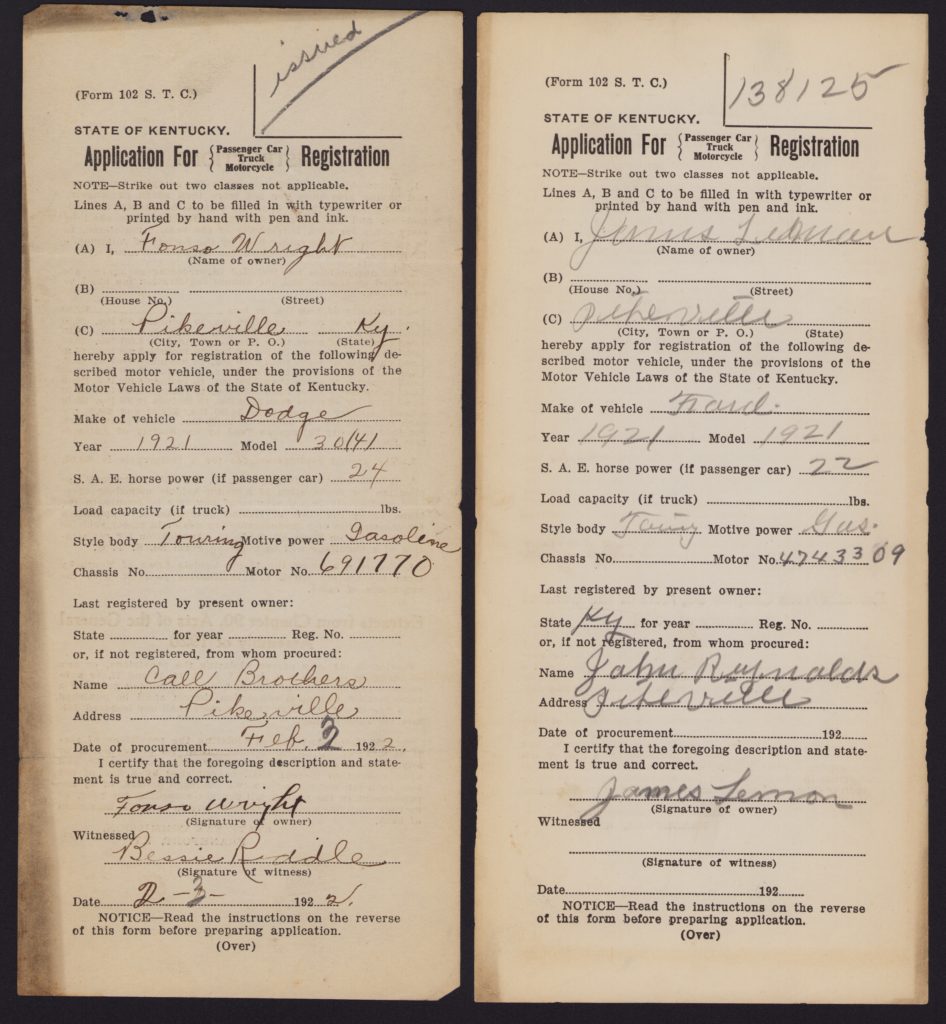 issued
(Form 102 S. T. C.)
STATE OF KENTUCKY.
Application For { Passenger Car Truck Motorcycle } Registration
NOTE—Strike out two classes not applicable.
Lines A, B and C to be filled in with typewriter or
printed by hand with pen and ink.
(A) I, Fonso Wright
(Name of owner)
(B)
(House No.) (Street)
(C) Pikeville Ky.
(City, Town or P. O.) (State)
hereby apply for registration of the following de-
scribed motor vehicle, under the provisions of the
Motor Vehicle Laws of the State of Kentucky.
Make of vehicle Dodge
Year 1921 Model 30141
S. A. E. horse power (if passenger car) 24
Load capacity (if truck) lbs.
Style body Touring Motive power Gasoline
Chassis No. Motor No. 691770
Last registered by present owner:
State for year Reg. No.
or, if not registered, from whom procured:
Name Call Brothers
Address Pikeville
Date of procurement Feb. 3 1922.
I certify that the foregoing description and state-
ment is true and correct.
Fonso Wright
(Signature of owner)
Witnessed
Bessie Riddle
(Signature of witness)
Date 2-3- 1922.
NOTICE—Read the instructions on the reverse
of this form before preparing application.
(Over)
138125
(Form 102 S. T. C.)
STATE OF KENTUCKY.
Application For { Passenger Car Truck Motorcycle } Registration
NOTE—Strike out two classes not applicable.
Lines A, B and C to be filled in with typewriter or
printed by hand with pen and ink.
(A) I,
(Name of owner)
(B)
(House No.) (Street)
(C) Pikeville
(City, Town or P. O.) (State)
hereby apply for registration of the following de-
scribed motor vehicle, under the provisions of the
Motor Vehicle Laws of the State of Kentucky.
Make of vehicle Ford.
Year 1921 Model 1921
S. A. E. horse power (if passenger car) 22
Load capacity (if truck) lbs.
Style body Motive power Gas.
Chassis No. Motor No. 4743309
Last registered by present owner:
State Ky for year Reg. No.
or, if not registered, from whom procured:
Name John Reynolds
Address Pikeville
Date of procurement 192
I certify that the foregoing description and state-
ment is true and correct.
James Lemon
(Signature of owner)
Witnessed
(Signature of witness)
Date 192
NOTICE—Read the instructions on the reverse
of this form before preparing application.
(Over)